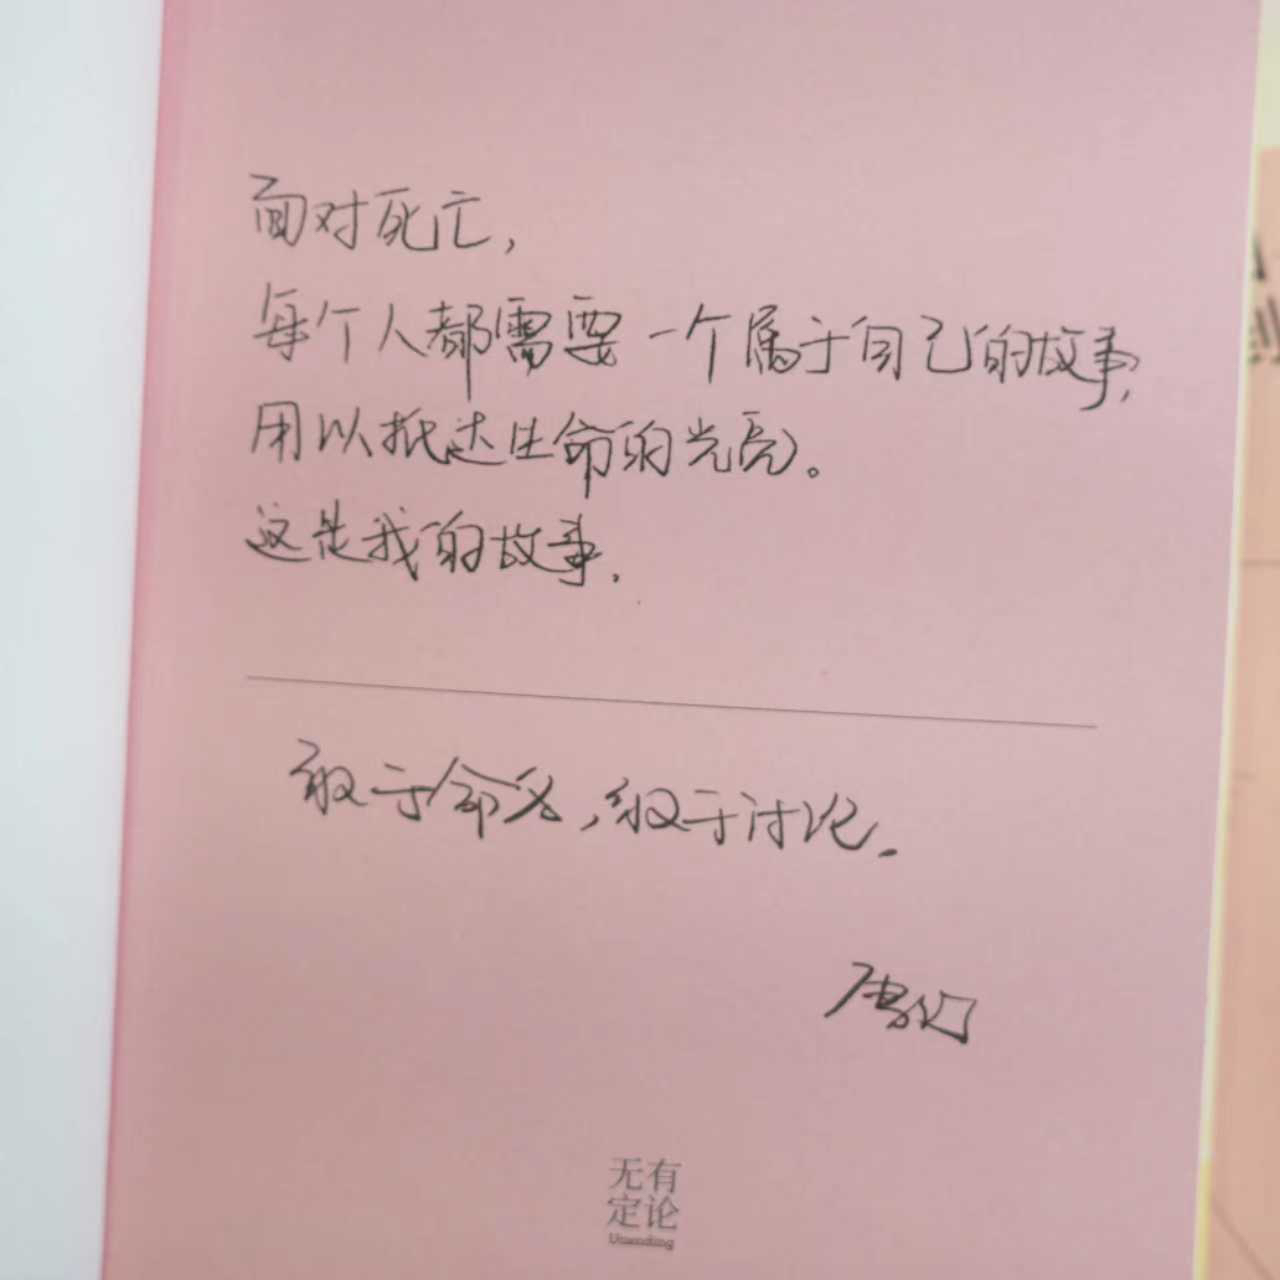 面对死亡，
每个人都需要一个属于自己的故事，
用以抵达生命的光亮。
这是我的故事.
敢于命名，敢于讨论.
无有
定论